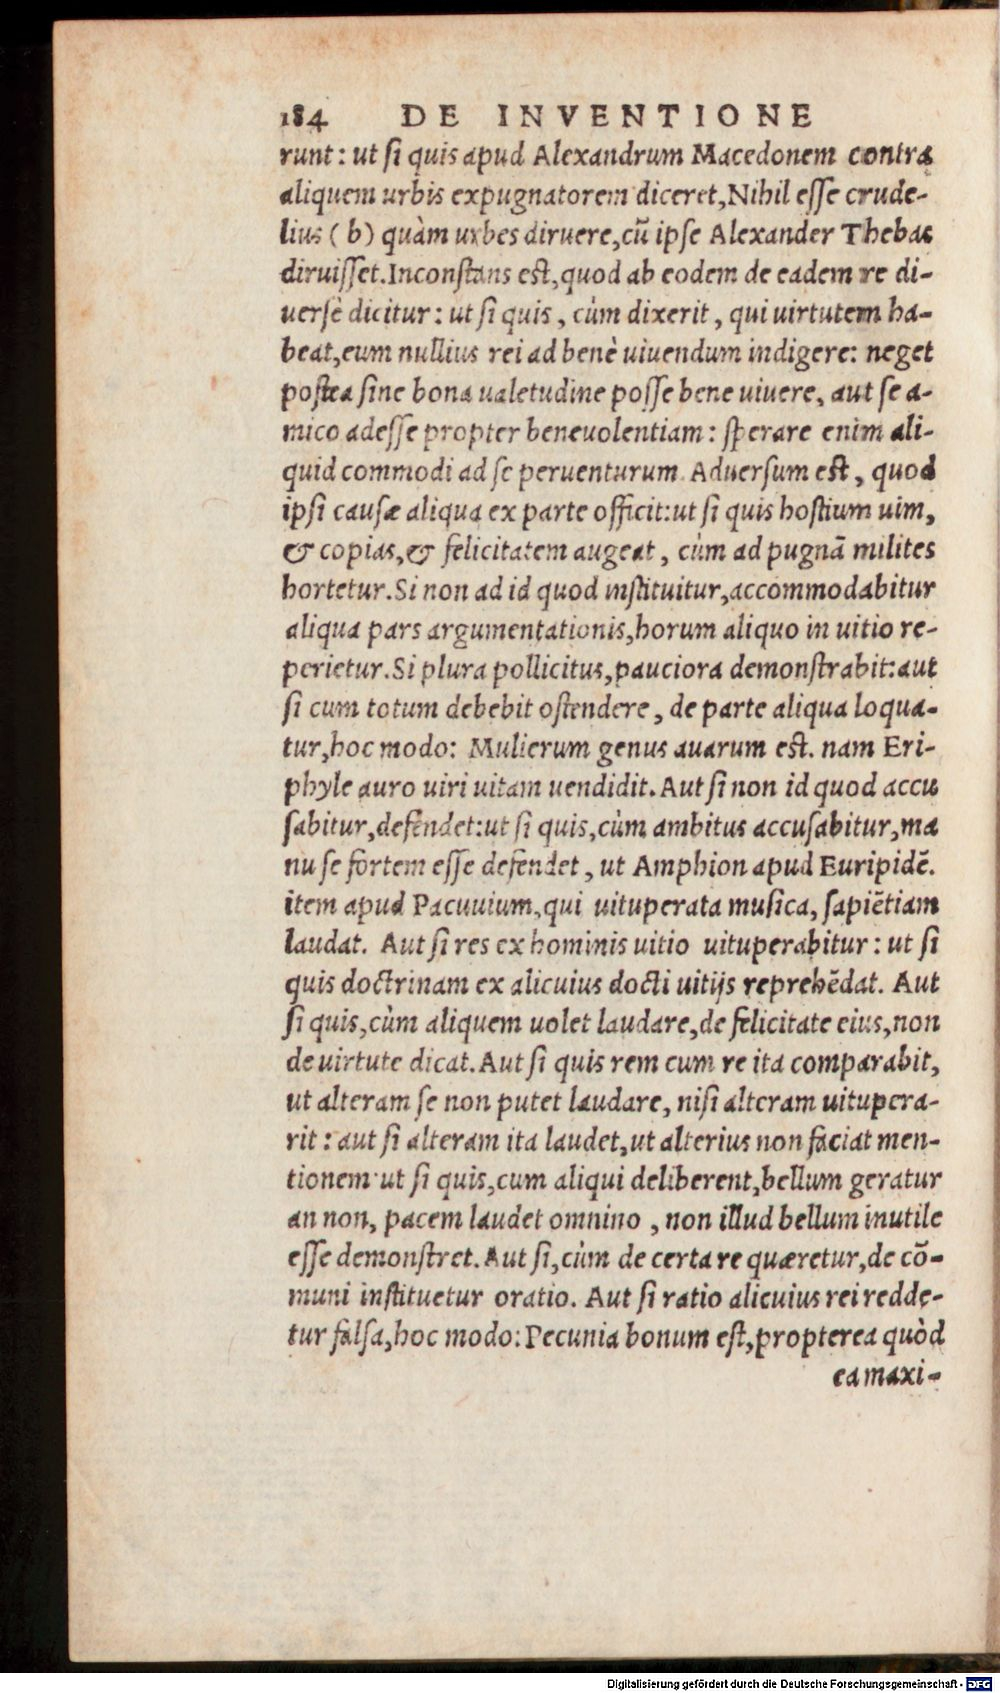 184 DE INVENTIONE
runt: ut si quis apud Alexandrum Macedonem contra
aliquem urbis expugnatorem diceret, Nihil esse crude-
lius (b) quàm urbes diruere, cũ ipse Alexander Thebas
diruisset. Inconstans est, quod ab eodem de eadem re di-
uersè dicitur: ut si quis, cùm dixerit, qui uirtutem ha-
beat, eum nullius rei ad benè uiuendum indigere: neget
postea sine bona ualetudine posse bene uiuere, aut se a-
mico adesse propter beneuolentiam: sperare enim ali-
quid commodi ad se peruenturum. Aduersum est, quod
ipsi causæ aliqua ex parte officit: ut si quis hostium uim,
& copias, & felicitatem augeat, cùm ad pugnã milites
hortetur. Si non ad id quod instituitur, accommodabitur
aliqua pars argumentationis, horum aliquo in uitio re-
perietur. Si plura pollicitus, pauciora demonstrabit: aut
si cum totum debebit ostendere, de parte aliqua loqua-
tur, hoc modo: Mulierum genus auarum est. nam Eri-
phyle auro uiri uitam uendidit. Aut si non id quod accu
sabitur, defendet: ut si quis, cùm ambitus accusabitur, ma
nu se fortem esse defendet, ut Amphion apud Euripidẽ.
item apud Pacuuium, qui uituperata musica, sapiẽtiam
laudat. Aut si res ex hominis uitio uituperabitur: ut si
quis doctrinam ex alicuius docti uitijs reprehẽdat. Aut
si quis, cùm aliquem uolet laudare, de felicitate eius, non
de uirtute dicat. Aut si quis rem cum re ita comparabit,
ut alteram se non putet laudare, nisi alteram uitupera-
rit: aut si alteram ita laudet, ut alterius non faciat men-
tionem: ut si quis, cum aliqui deliberent, bellum geratur
an non, pacem laudet omnino, non illud bellum inutile
esse demonstret. Aut si, cùm de certa re quæretur, de cõ-
muni instituetur oratio. Aut si ratio alicuius rei redde-
tur falsa, hoc modo: Pecunia bonum est, propterea quòd
ea maxi-
Digitalisierung gefördert durch die Deutsche Forschungsgemeinschaft - DFG